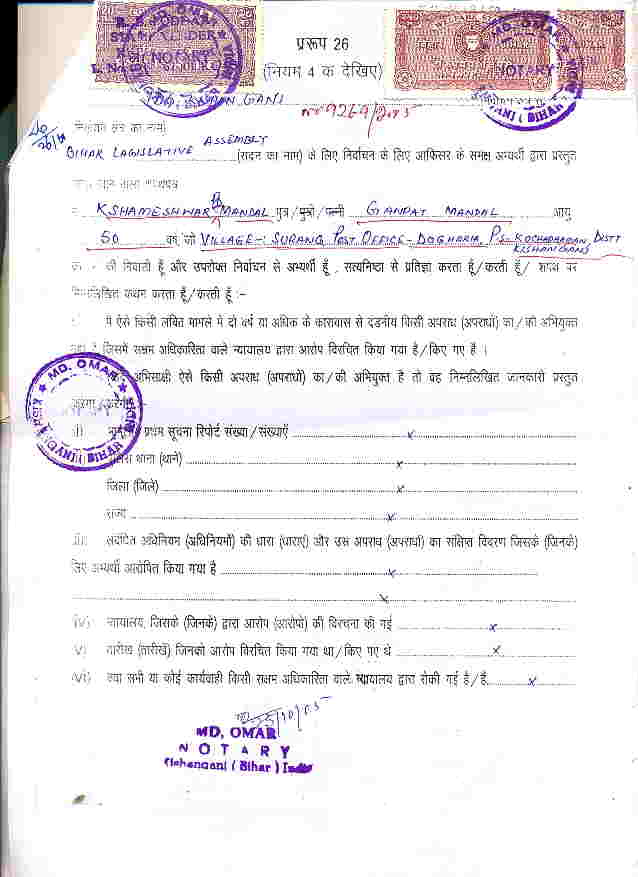 प्ररूप 26
(नियम 4 क देखिए)
MD. OMAR
NOTARY
KISHANGANJ
ASSEMBLY
BIHAR LAGISLATIVE (सदन का नाम) के लिए निर्वाचन के लिए आफिसर के समक्ष अभ्यर्थी द्वारा प्रस्तुत
KSHAMESHWAR PD MANDAL पुत्र/पुत्री/पत्नी GANPAT MANDAL आयु
50 वर्ष, जो VILLAGE-: SURANG POST OFFICE- DOGHARIA PS- KOCHADHAMAN DISTT
KISHANGANJ
की निवासी हूँ और उपरोक्त निर्वाचन से अभ्यर्थी हूँ, सत्यनिष्ठा से प्रतिज्ञा करता हूँ/करती हूँ/ शपथ पर
निम्नलिखित कथन करता हूँ/करती हूँ :-
मै ऐसे किसी लंबित मामले मे दो वर्ष या अधिक के कारावास से दंडनीय किसी अपराध (अपराधों) का/की अभियुक्त
जिसमें सक्षम अधिकारिता वाले न्यायालय द्वारा आरोप विरचित किया गया है/किए गए है ।
MD. OMAR
अभिसाक्षी ऐसे किसी अपराध (अपराधों) का/की अभियुक्त है तो वह निम्नलिखित जानकारी प्रस्तुत
करेगा/करेगी :-
प्रथम सूचना रिपोर्ट संख्या/संख्याएँ x
थाना (थाने) x
जिला (जिले) x
राज्य x
संबंधित अधिनियम (अधिनियमों) की धारा (धाराएं) और उस अपराध (अपराधों) का संक्षिप्त विवरण जिसके (जिनके)
लिए अभ्यर्थी आरोपित किया गया है x
x
(iv) न्यायालय, जिसके (जिनके) द्वारा आरोप (आरोपों) की विरचना की गई x
(v) तारीख (तारीखें) जिनको आरोप विरचित किया गया था/किए गए थे x
(vi) क्या सभी या कोई कार्यवाही किसी सक्षम अधिकारिता वाले न्यायालय द्वारा रोकी गई है/हैं x
MD, OMAR
NOTARY
Kishanganj ( Bihar ) India